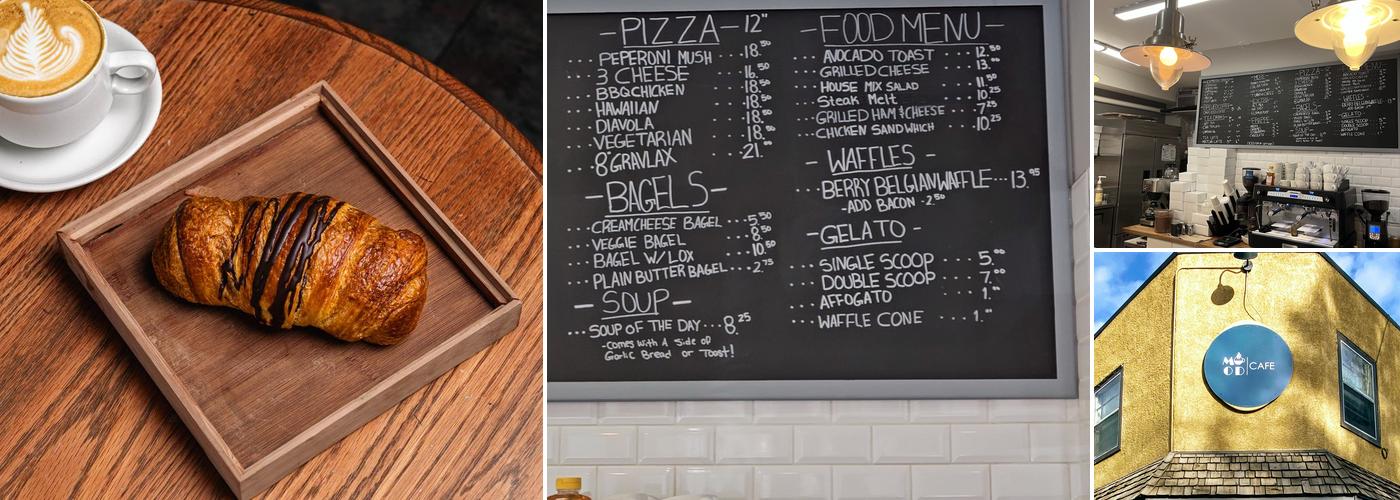 -PIZZA-12"
PEPERONI MUSH ...18.50
3 CHEESE ....16.50
BBQ CHICKEN ...18.50
HAWAIIAN ....18.50
DIAVOLA ....18.50
VEGETARIAN ...18.50
8" GRAVLAX ....21.00
-BAGELS-
CREAMCHEESE BAGEL ...5.50
VEGGIE BAGEL
BAGEL W/ LOX ...10.50
PLAIN BUTTER BAGEL...2.75
-SOUP-
...SOUP OF THE DAY...8.25
-Comes with A Side of
Garlic Bread or Toast!
-FOOD MENU-
AVOCADO TOAST ....12.50
GRILLED CHEESE ....13.00
HOUSE MIX SALAD ...11.50
Steak Melt ....10.25
GRILLED HAM & CHEESE ...7.25
CHICKEN SANDWHICH ...10.25
-WAFFLES-
...BERRY BELGIAN WAFFLE...13.95
-ADD BACON -2.50
-GELATO-
...SINGLE SCOOP ....5.00
...DOUBLE SCOOP ....7.00
...AFFOGATO ....1.00
...WAFFLE CONE ....1.00
MOOD | CAFE